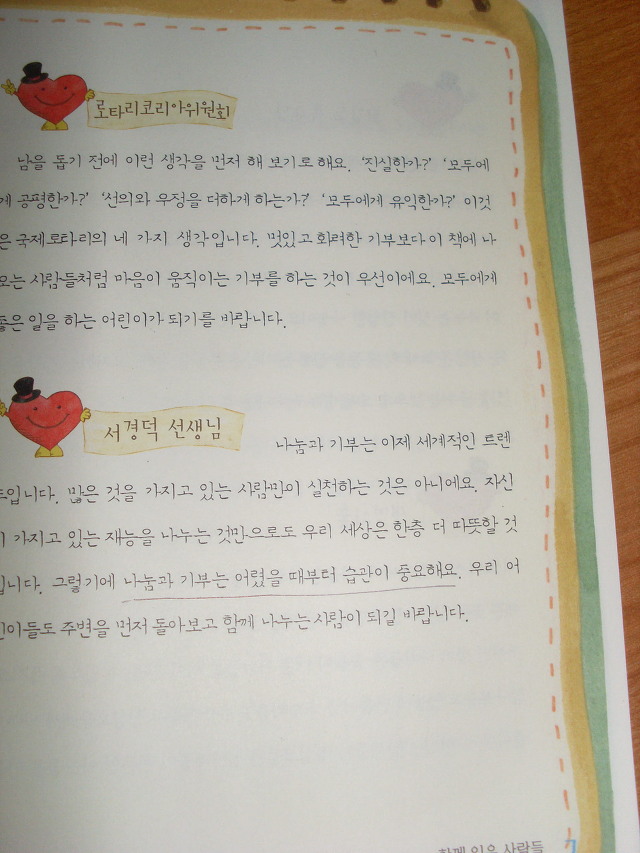 로타리코리아위원회
남을 돕기 전에 이런 생각을 먼저 해 보기로 해요. '진실한가?' '모두에
게 공평한가?' '선의와 우정을 더하게 하는가?' '모두에게 유익한가?' 이것
은 국제로타리의 네 가지 생각입니다. 멋있고 화려한 기부보다 이 책에 나
오는 사람들처럼 마음이 움직이는 기부를 하는 것이 우선이에요. 모두에게
좋은 일을 하는 어린이가 되기를 바랍니다.
서경덕 선생님
나눔과 기부는 이제 세계적인 트렌
드입니다. 많은 것을 가지고 있는 사람만이 실천하는 것은 아니에요. 자신
이 가지고 있는 재능을 나누는 것만으로도 우리 세상은 한층 더 따뜻할 것
입니다. 그렇기에 나눔과 기부는 어렸을 때부터 습관이 중요해요. 우리 어
린이들도 주변을 먼저 돌아보고 함께 나누는 사람이 되길 바랍니다.
함께 읽은 사람들 7